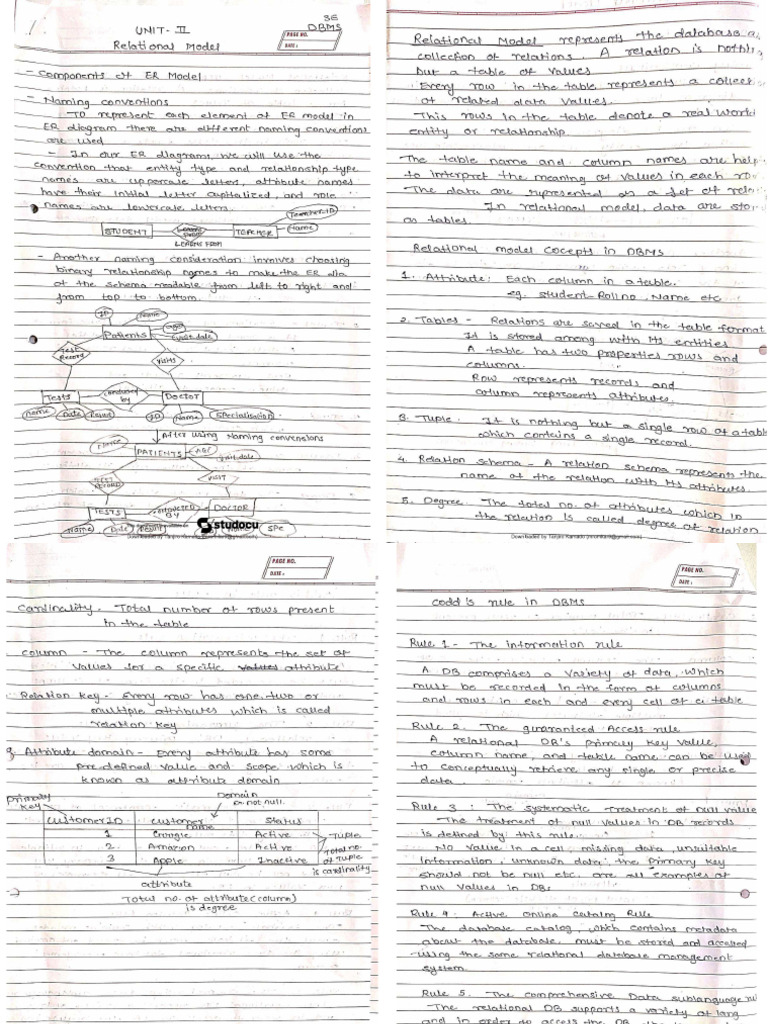 SE
UNIT - II
DBMS
Relational Model
PAGE NO.
DATE:
- Components of ER Model
- Naming conventions
To represent each element of ER model in
ER diagram there are different naming conventions
are used
- In our ER diagrams, we will use the
convention that entity type and relationship type
names are uppercase letters, attribute names
have their initial letter capitalized, and role
names are lowercase letters.
Teacher-ID
STUDENT
TEACHER
Name
LEARNS FROM
- Another naming consideration involves choosing
binary relationship names to make the ER dia
of the schema readable from left to right and
from top to bottom.
ID
Name
Patients
Age
visit date
Test
Record
visits
Tests
conducted
by
Doctor
Name
Date
Result
ID
Name
Specialisation
After using Naming convensions
Name
PATIENTS
AGE
visit date
TEST
RECORD
VISIT
TESTS
CONDUCTED
BY
DOCTOR
Name
Date
Result
Name
Spe
studocu
Relational Model represents the database a
collection of relations. A relation is nothin
but a table of values
Every row in the table represents a collec
of related data values.
This rows in the table denote a real world
entity or relationship.
The table name and column names are help
to interpret the meaning of values in each ro
The data are represented as a set of rela
In relational model, data are sto
as tables.
Relational model Cocepts in DBMS
1. Attribute: Each column in a table.
eg. student-Rollno, Name etc
2. Tables - Relations are saved in the table format
It is stored among with its entities
A table has two properties rows and
columns.
Row represents records and
column represents attributes.
3. Tuple. It is nothing but a single row of a table
which contains a single record.
4. Relation schema - A relation schema represents the
name of the relation with its attributes.
5. Degree. The total no. of attributes which in
the relation is called degree of relation
PAGE NO.
DATE:
Cardinality. Total number of rows present
in the table
column - The column represents the set of
values for a specific values attribute
Relation key - Every row has one, two or
multiple attributes which is called
relation key
Attribute domain - Every attribute has some
pre-defined value and scope which is
known as attribute domain
Primary
key
Domain
or not null.
CustomerID
customer
name
Status
1 Google Active
2. Amazon Active
3 Apple Inactive
Tuple
Total no.
of tuple
is cardinality
attribute
Total no. of attribute (column)
is degree
PAGE NO.
DATE:
codd's rule in DBMS
Rule 1 - The information rule
A DB comprises a variety of data, which
must be recorded in the form of columns
and rows in each and every cell of a table
Rule 2. The guaranteed Access rule
A relational DB's primary key value,
column name, and table name can be used
to conceptually retrieve any single or precise
data
Rule 3: The systematic treatment of null value
The treatment of null values in DB records
is defined by this rule.
No value in a cell, missing data, unsuitable
information, unknown data, the primary key
should not be null etc. are all examples of
null values in DBs
Rule 4. Active online catalog Rule
The database catalog, which contains metadata
about the database, must be stored and accessed
using the same relational database management
system.
Rule 5. The comprehensive Data sublanguage ru
The relational DB supports a variety of lang
and in order to access the DB